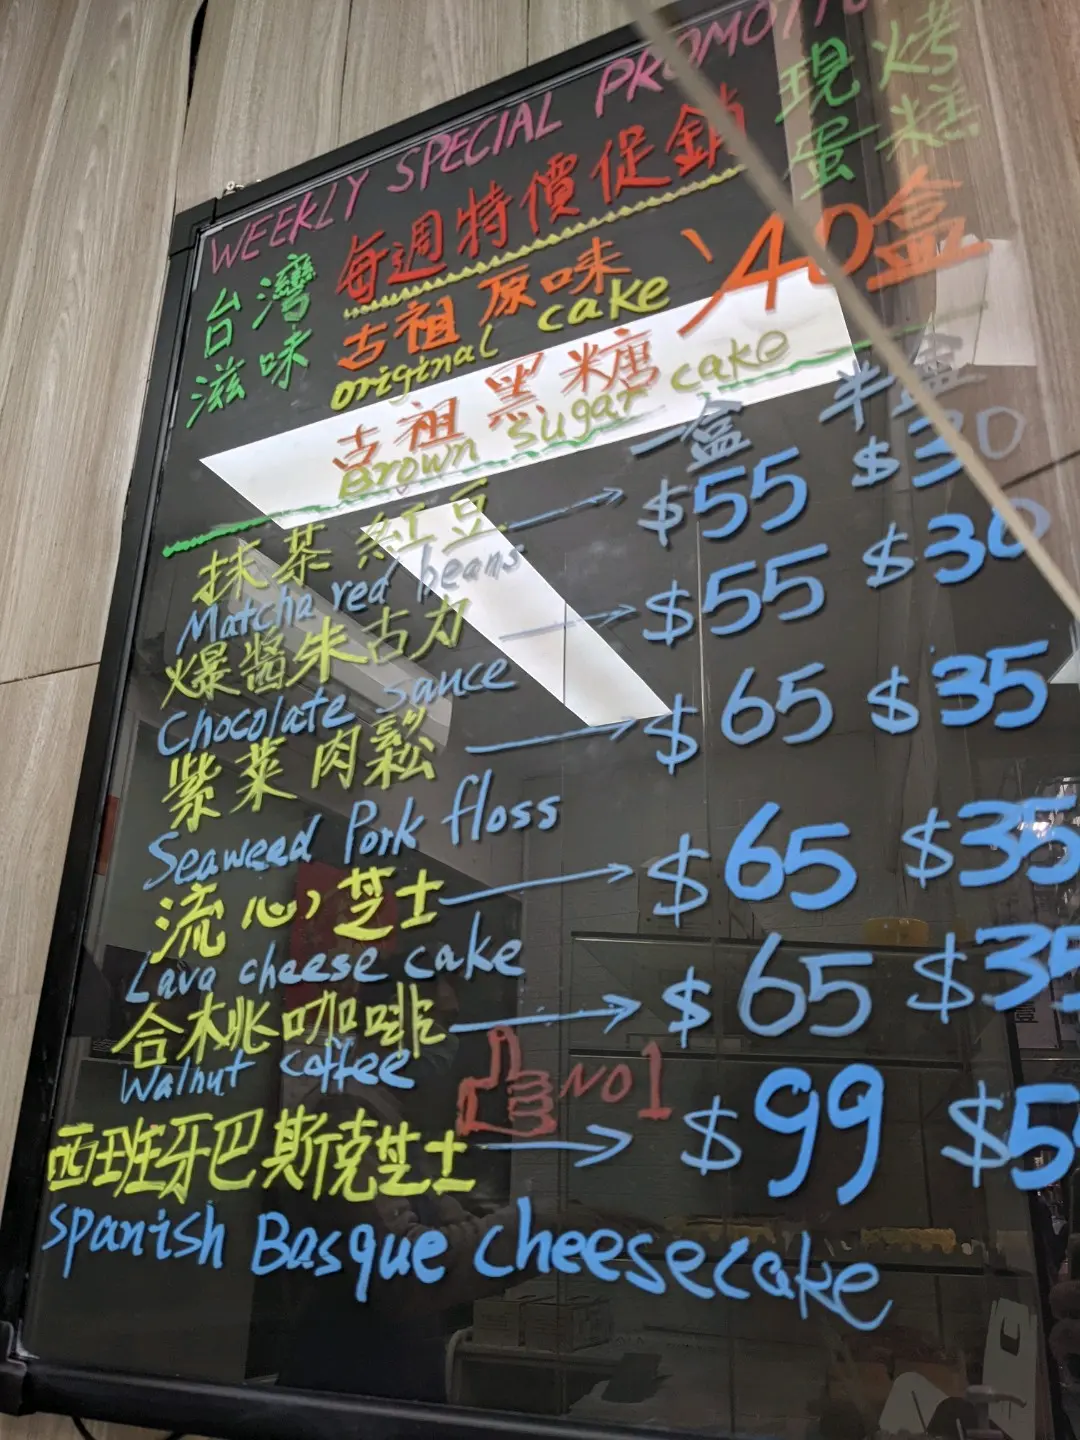 WEEKLY SPECIAL PROMOTIO
現烤
蛋糕
台灣
滋味
每週特價促銷
古祖原味
original cake
40盒
古祖黑糖
Brown sugar cake
一盒 半盒
抹茶紅豆 $55 $30
Matcha red beans
爆醬朱古力 $55 $30
Chocolate sauce
紫菜肉鬆 $65 $35
Seaweed Pork floss
流心芝士 $65 $35
Lava cheese cake
合桃咖啡 $65 $35
Walnut coffee
NO1
西班牙巴斯克芝士 $99 $5
Spanish Basque cheesecake